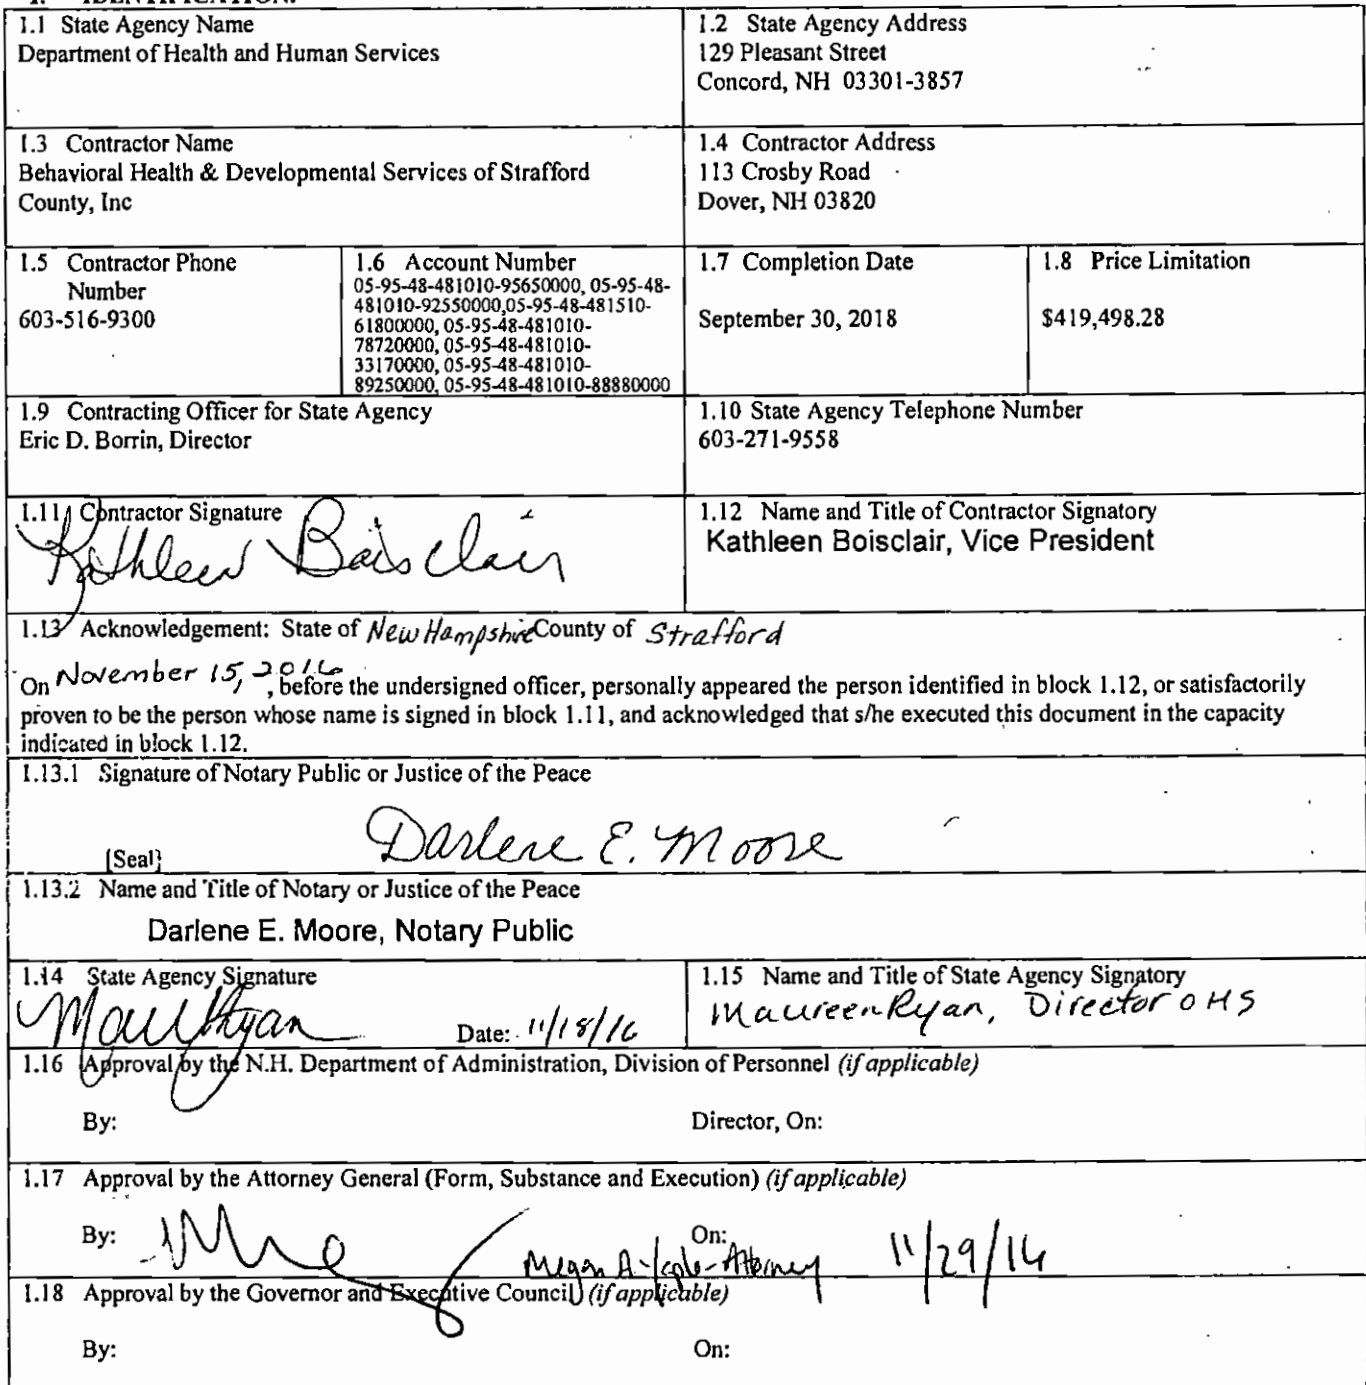 1.1 State Agency Name
Department of Health and Human Services
1.2 State Agency Address
129 Pleasant Street
Concord, NH 03301-3857
1.3 Contractor Name
Behavioral Health & Developmental Services of Strafford
County, Inc
1.4 Contractor Address
113 Crosby Road
Dover, NH 03820
1.5 Contractor Phone
Number
603-516-9300
1.6 Account Number
05-95-48-481010-95650000, 05-95-48-
481010-92550000,05-95-48-481510-
61800000, 05-95-48-481010-
78720000, 05-95-48-481010-
33170000, 05-95-48-481010-
89250000, 05-95-48-481010-88880000
1.7 Completion Date
September 30, 2018
1.8 Price Limitation
$419,498.28
1.9 Contracting Officer for State Agency
Eric D. Borrin, Director
1.10 State Agency Telephone Number
603-271-9558
1.11 Contractor Signature
Kathleen Boisclair
1.12 Name and Title of Contractor Signatory
Kathleen Boisclair, Vice President
1.13 Acknowledgement: State of New Hampshire County of Strafford
On November 15, 2016, before the undersigned officer, personally appeared the person identified in block 1.12, or satisfactorily
proven to be the person whose name is signed in block 1.11, and acknowledged that s/he executed this document in the capacity
indicated in block 1.12.
1.13.1 Signature of Notary Public or Justice of the Peace
Darlene E. Moore
[Seal]
1.13.2 Name and Title of Notary or Justice of the Peace
Darlene E. Moore, Notary Public
1.14 State Agency Signature
Date: 11/18/16
1.15 Name and Title of State Agency Signatory
Maureen Ryan, Director OHS
1.16 Approval by the N.H. Department of Administration, Division of Personnel (if applicable)
By: Director, On:
1.17 Approval by the Attorney General (Form, Substance and Execution) (if applicable)
By: On:
Megan A. - Attorney 11/29/16
1.18 Approval by the Governor and Executive Council (if applicable)
By: On: